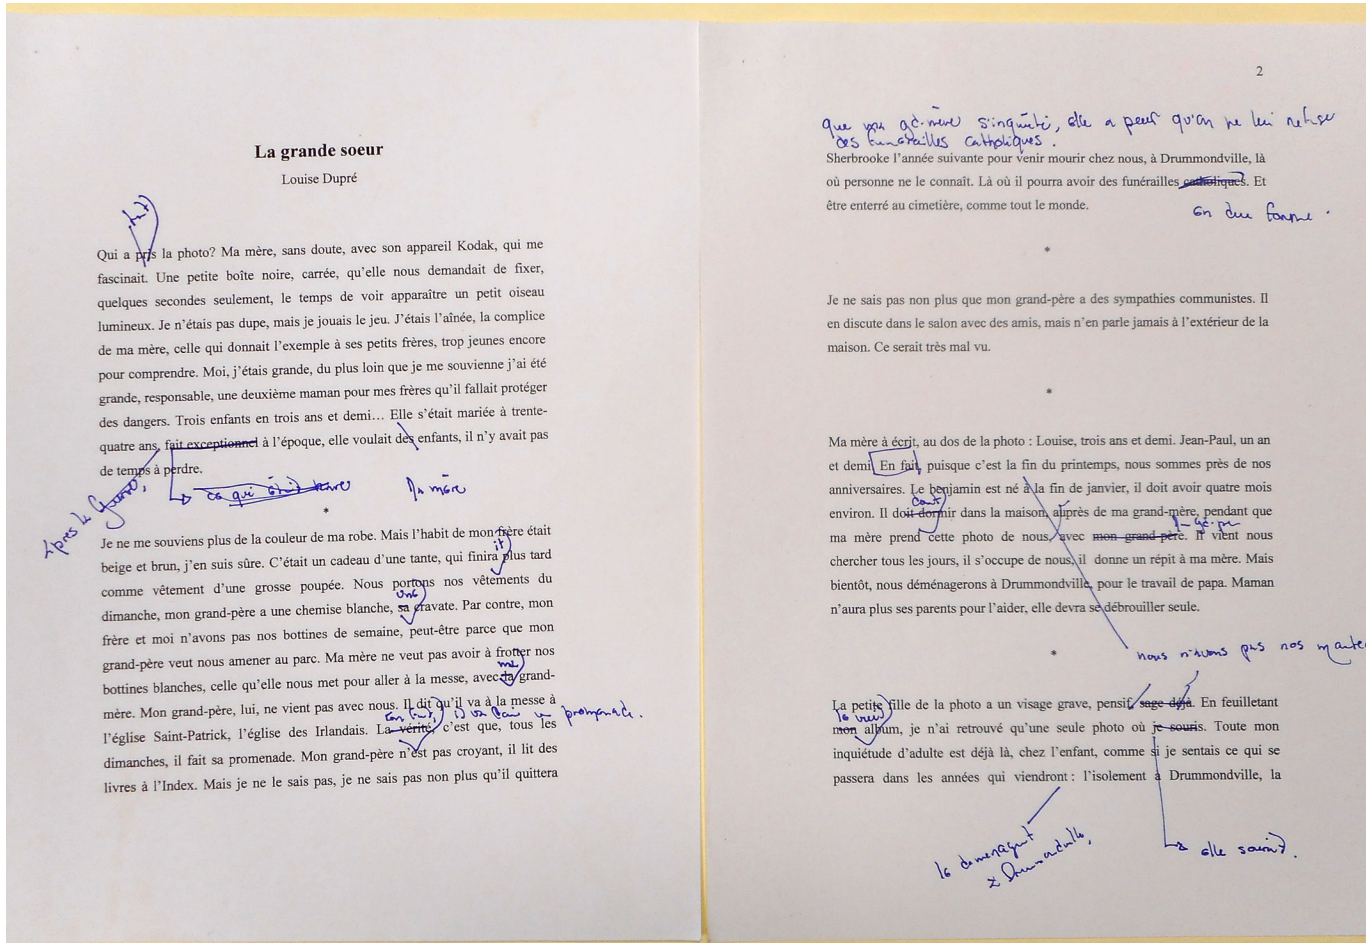 La grande soeur
Louise Dupré
Qui a pris la photo? Ma mère, sans doute, avec son appareil Kodak, qui me
fascinait. Une petite boîte noire, carrée, qu'elle nous demandait de fixer,
quelques secondes seulement, le temps de voir apparaître un petit oiseau
lumineux. Je n'étais pas dupe, mais je jouais le jeu. J'étais l'aînée, la complice
de ma mère, celle qui donnait l'exemple à ses petits frères, trop jeunes encore
pour comprendre. Moi, j'étais grande, du plus loin que je me souvienne j'ai été
grande, responsable, une deuxième maman pour mes frères qu'il fallait protéger
des dangers. Trois enfants en trois ans et demi… Elle s'était mariée à trente-
quatre ans, fait exceptionnel à l'époque, elle voulait des enfants, il n'y avait pas
de temps à perdre.
ce qui était
Ma mère
*
Je ne me souviens plus de la couleur de ma robe. Mais l'habit de mon frère était
it
beige et brun, j'en suis sûre. C'était un cadeau d'une tante, qui finira plus tard
comme vêtement d'une grosse poupée. Nous portons nos vêtements du
une
dimanche, mon grand-père a une chemise blanche, sa cravate. Par contre, mon
frère et moi n'avons pas nos bottines de semaine, peut-être parce que mon
grand-père veut nous amener au parc. Ma mère ne veut pas avoir à frotter nos
ma
bottines blanches, celle qu'elle nous met pour aller à la messe, avec la grand-
mère. Mon grand-père, lui, ne vient pas avec nous. Il dit qu'il va à la messe à
promenade.
l'église Saint-Patrick, l'église des Irlandais. La vérité, c'est que, tous les
dimanches, il fait sa promenade. Mon grand-père n'est pas croyant, il lit des
livres à l'Index. Mais je ne le sais pas, je ne sais pas non plus qu'il quittera
2
que ma gd-mère s'inquiète, elle a peur qu'on ne lui refuse
des funérailles catholiques.
Sherbrooke l'année suivante pour venir mourir chez nous, à Drummondville, là
où personne ne le connaît. Là où il pourra avoir des funérailles catholiques. Et
être enterré au cimetière, comme tout le monde.
en due forme.
*
Je ne sais pas non plus que mon grand-père a des sympathies communistes. Il
en discute dans le salon avec des amis, mais n'en parle jamais à l'extérieur de la
maison. Ce serait très mal vu.
*
Ma mère à écrit, au dos de la photo : Louise, trois ans et demi. Jean-Paul, un an
et demi. En fait, puisque c'est la fin du printemps, nous sommes près de nos
anniversaires. Le benjamin est né à la fin de janvier, il doit avoir quatre mois
environ. Il doit dormir dans la maison, auprès de ma grand-mère, pendant que
ma mère prend cette photo de nous, avec mon grand-père. Il vient nous
chercher tous les jours, il s'occupe de nous, il donne un répit à ma mère. Mais
bientôt, nous déménagerons à Drummondville, pour le travail de papa. Maman
n'aura plus ses parents pour l'aider, elle devra se débrouiller seule.
*
nous n'avons pas nos mante
La petite fille de la photo a un visage grave, pensif, sage déjà. En feuilletant
le vieil
mon album, je n'ai retrouvé qu'une seule photo où je souris. Toute mon
inquiétude d'adulte est déjà là, chez l'enfant, comme si je sentais ce qui se
passera dans les années qui viendront : l'isolement à Drummondville, la
elle sourit.
à Drummondville,